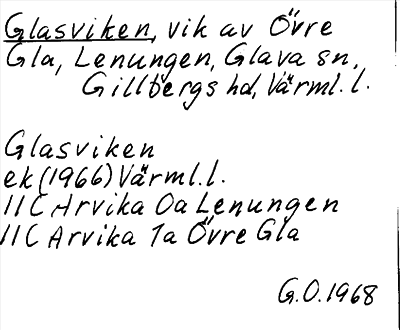 Glasviken, vik av Övre
Gla, Lenungen, Glava sn,
Gillbergs hd, Värml. l.
Glasviken
ek (1966) Värml. l.
11C Arvika 0a Lenungen
11C Arvika 1a Övre Gla
G.O. 1968